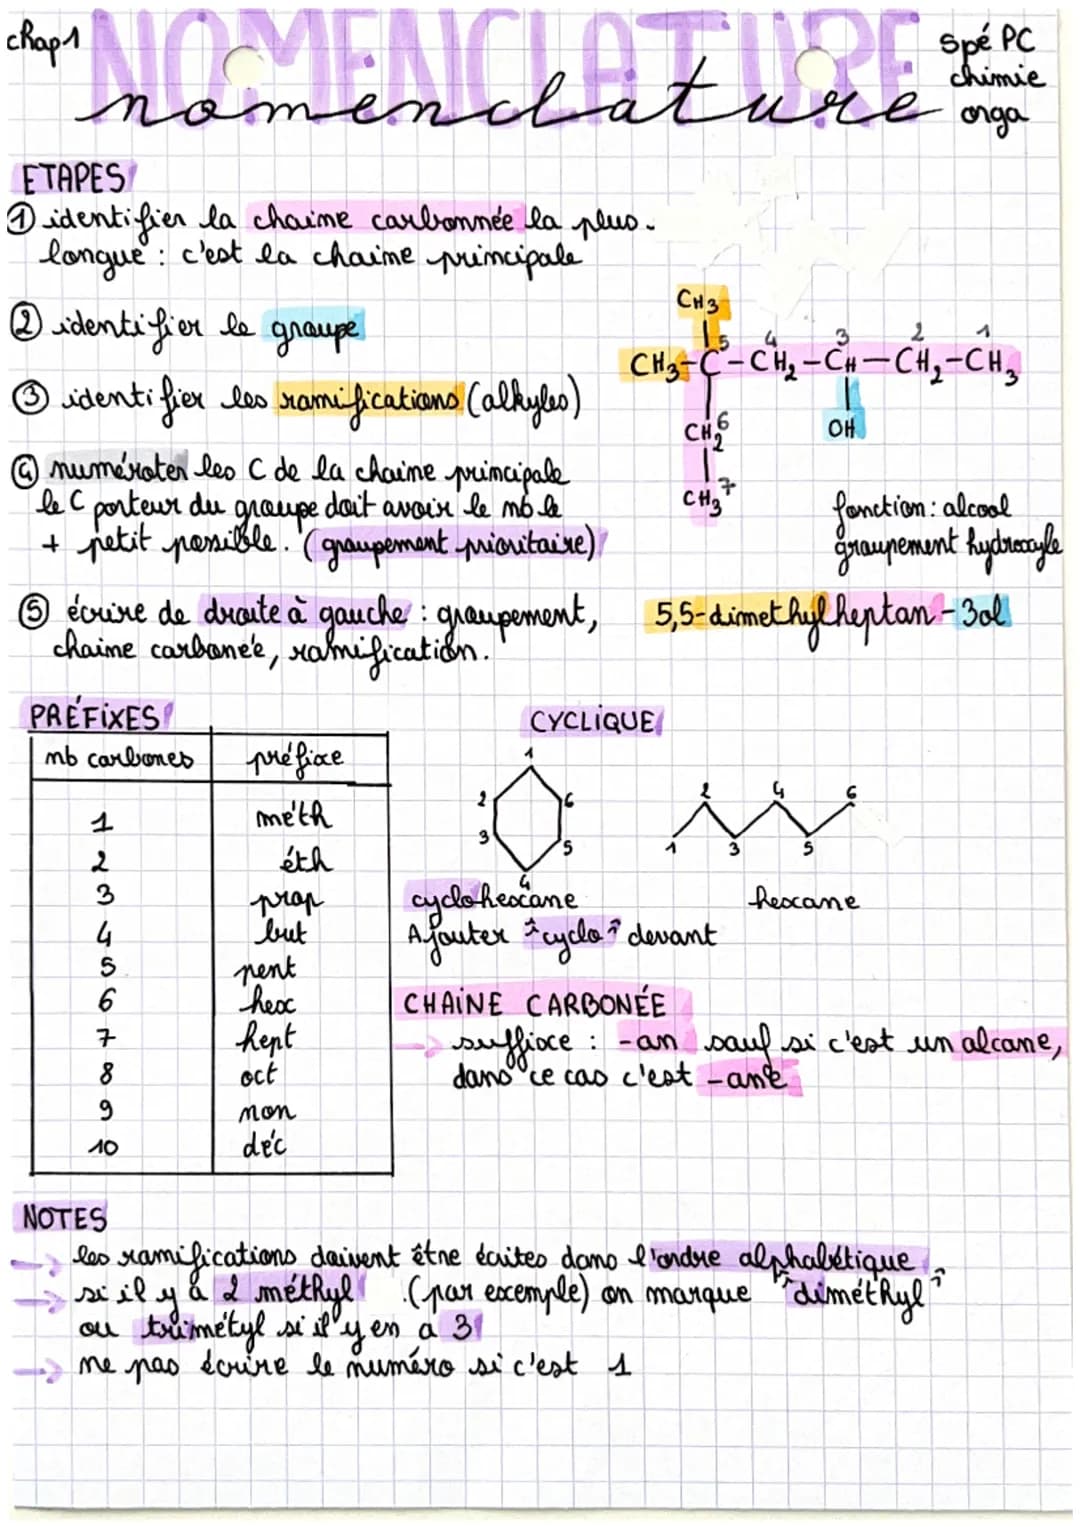 chap 1
NOMENCLATURE
nomenclature
spé PC
chimie
orga
ETAPES
① identifier la chaine carbonnée la plus
longue : c'est la chaine principale
② identifier le groupe
③ identifier les ramifications (alkyles)
④ numéroter les C de la chaine principale
le C porteur du groupe doit avoir le nb le
+ petit possible. (groupement prioritaire)
⑤ écrire de droite à gauche : groupement,
chaine carbonée, ramification.
CH3
5 4 3 2 1
CH3-C-CH2-CH-CH2-CH3
CH2 6
OH
CH3 7
fonction : alcool
groupement hydroxyle
5,5-dimethylheptan-3ol
PRÉFIXES
nb carbones préfixe
1 méth
2 éth
3 prop
4 but
5 pent
6 hex
7 hept
8 oct
9 non
10 déc
CYCLIQUE
1
2 6
3 5
4
2 4 6
1 3 5
cyclohexane
hexane
Ajouter "cyclo" devant
CHAINE CARBONÉE
→ suffixe : -an sauf si c'est un alcane,
dans ce cas c'est -ane
NOTES
→ les ramifications doivent être écites dans l'ordre alphabétique
→ si il y a 2 méthyl (par exemple) on marque "diméthyl"
ou trimétyl si il y en a 3
→ ne pas écrire le numéro si c'est 1